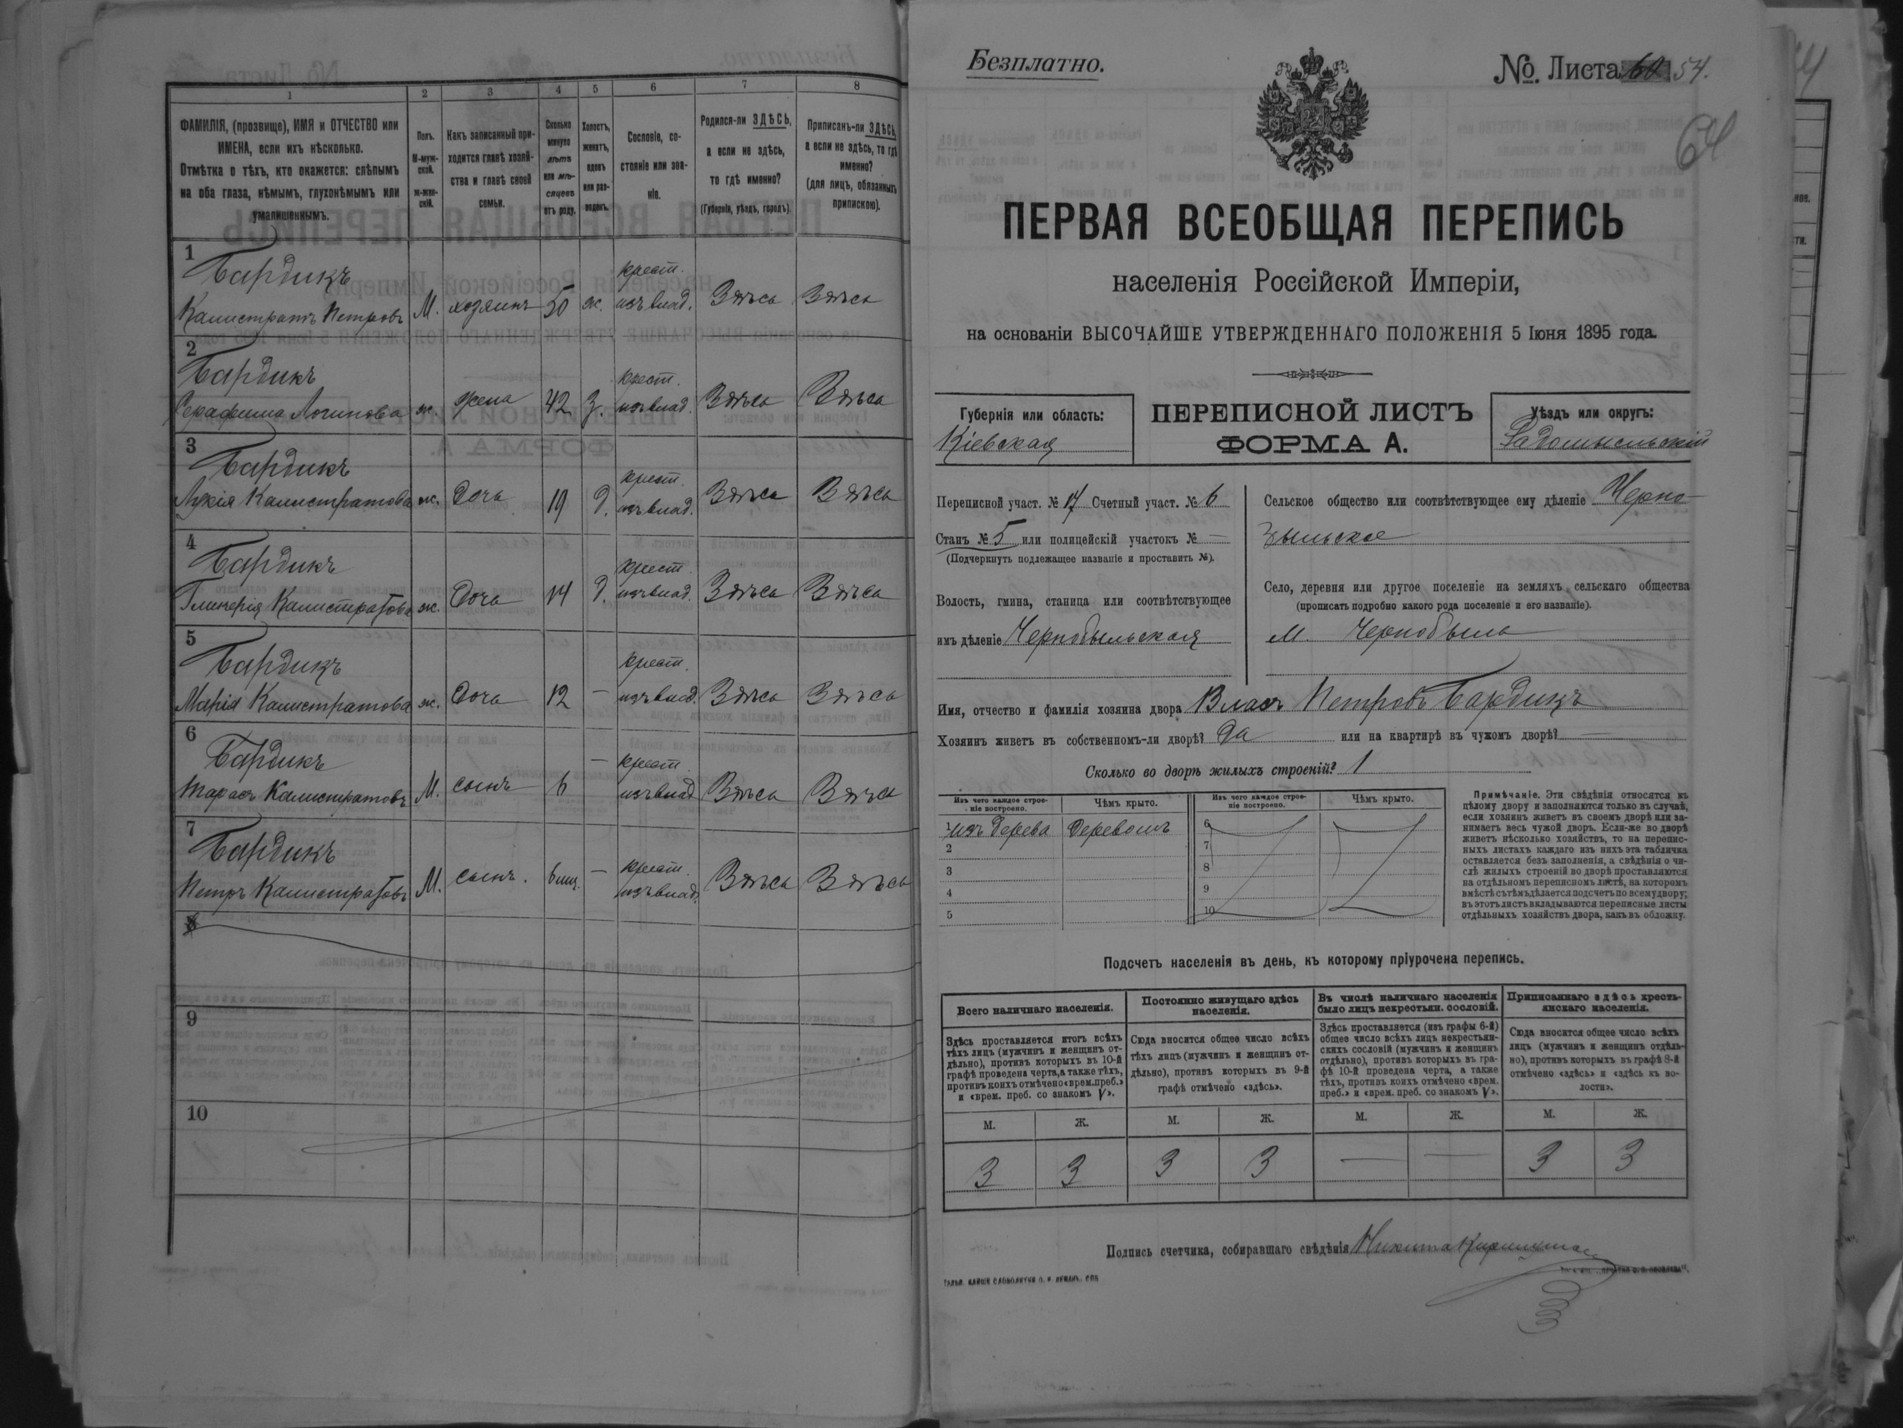 1
2
3
4
5
6
7
8
ФАМИЛІЯ, (прозвище), ИМЯ и ОТЧЕСТВО или
ИМЕНА, если ихъ нѣсколько.
Отмѣтка о тѣхъ, кто окажется: слѣпымъ
на оба глаза, нѣмымъ, глухонѣмымъ или
умалишеннымъ.
Полъ.
М-муж-
ской.
ж-жен-
скій.
Какъ записанный при-
ходится главѣ хозяй-
ства и главѣ своей
семьи.
Сколько
минуло
лѣтъ
или мѣ-
сяцевъ
отъ роду.
Холостъ,
женатъ,
вдовъ
или раз-
веденъ.
Сословіе, со-
стояніе или зва-
ніе.
Родился-ли ЗДѢСЬ,
а если не здѣсь,
то гдѣ именно?
(Губернія, уѣздъ, городъ).
Приписанъ-ли ЗДѢСЬ,
а если не здѣсь, то гдѣ
именно?
(для лицъ, обязанныхъ
припискою).
1
Бардикъ
Калистратъ Петровъ М. хозяинъ 50 ж. крест. изъ влад. Здѣсь Здѣсь
2
Бардикъ
Серафима Логинова ж. жена 42 З. крест. изъ влад. Здѣсь Здѣсь
3
Бардикъ
Лукія Калистратова ж. Дочь 19 д. крест. изъ влад. Здѣсь Здѣсь
4
Бардикъ
Гликерія Калистратова ж. Дочь 14 д. крест. изъ влад. Здѣсь Здѣсь
5
Бардикъ
Марія Калистратова ж. Дочь 12 — крест. изъ влад. Здѣсь Здѣсь
6
Бардикъ
Тарасъ Калистратовъ М. сынъ 6 — крест. изъ влад. Здѣсь Здѣсь
7
Бардикъ
Петръ Калистратовъ М. сынъ. 6 мц. — крест. изъ влад. Здѣсь Здѣсь
8
9
10
Безплатно.
№ Листа 54.
64
ПЕРВАЯ ВСЕОБЩАЯ ПЕРЕПИСЬ
населенія Россійской Имперіи,
на основаніи ВЫСОЧАЙШЕ УТВЕРЖДЕННАГО ПОЛОЖЕНІЯ 5 Іюня 1895 года.
Губернія или область:
Кіевская
ПЕРЕПИСНОЙ ЛИСТЪ
ФОРМА А.
Уѣздъ или округъ:
Радомысльскій
Переписной участ. № 17 Счетный участ. № 6
Станъ № 5 или полицейскій участокъ № —
(Подчеркнуть подлежащее названіе и проставить №).
Волость, гмина, станица или соотвѣтствующее
имъ дѣленіе Чернобыльская
Сельское общество или соотвѣтствующее ему дѣленіе Черно-
быльское
Село, деревня или другое поселеніе на земляхъ сельскаго общества
(прописать подробно какого рода поселеніе и его названіе).
М. Чернобыль
Имя, отчество и фамилія хозяина двора Власъ Петровъ Бардикъ
Хозяинъ живетъ въ собственномъ-ли дворѣ? Да или на квартирѣ въ чужомъ дворѣ? —
Сколько во дворѣ жилыхъ строеній? 1
Изъ чего каждое строе-
ніе построено.
Чѣмъ крыто.
Изъ чего каждое строе-
ніе построено.
Чѣмъ крыто.
1 изъ дерева Деревомъ
2
3
4
5
6
7
8
9
10
Примѣчаніе. Эти свѣдѣнія относятся къ
цѣлому двору и заполняются только въ случаѣ,
если хозяинъ живетъ въ своемъ дворѣ или за-
нимаетъ весь чужой дворъ. Если-же во дворѣ
живетъ нѣсколько хозяйствъ, то на перепис-
ныхъ листахъ каждаго изъ нихъ эта табличка
оставляется безъ заполненія, а свѣдѣнія о чи-
слѣ жилыхъ строеній во дворѣ проставляются
на отдѣльномъ переписномъ листѣ, на которомъ
вмѣстѣ съ тѣмъ дѣлается подсчетъ по всему двору;
въ этотъ листъ вкладываются переписные листы
отдѣльныхъ хозяйствъ двора, какъ въ обложку.
Подсчетъ населенія въ день, къ которому пріурочена перепись.
Всего наличнаго населенія.
Здѣсь проставляется итогъ всѣхъ
тѣхъ лицъ (мужчинъ и женщинъ от-
дѣльно), противъ которыхъ въ 10-й
графѣ проведена черта, а также тѣхъ,
противъ коихъ отмѣчено «врем. преб.»
и «врем. преб. со знакомъ V».
Постоянно живущаго здѣсь
населенія.
Сюда вносится общее число всѣхъ
тѣхъ лицъ (мужчинъ и женщинъ от-
дѣльно), противъ которыхъ въ 9-й
графѣ отмѣчено «здѣсь».
Въ числѣ наличнаго населенія
было лицъ некрестьян. сословій.
Здѣсь проставляется (изъ графы 6-й)
общее число всѣхъ лицъ некрестьян-
скихъ сословій (мужчинъ и женщинъ
отдѣльно), противъ которыхъ въ гра-
фѣ 10-й проведена черта, а также
тѣхъ, противъ коихъ отмѣчено «врем.
преб.» и «врем. преб. со знакомъ V».
Приписаннаго здѣсь кресть-
янскаго населенія.
Сюда вносится общее число всѣхъ
лицъ (мужчинъ и женщинъ отдѣль-
но), противъ которыхъ въ графѣ 8-й
отмѣчено «здѣсь» и «здѣсь въ во-
лости».
М. Ж. М. Ж. М. Ж. М. Ж.
3 3 3 3 — — 3 3
Подпись счетчика, собиравшаго свѣдѣнія Никита